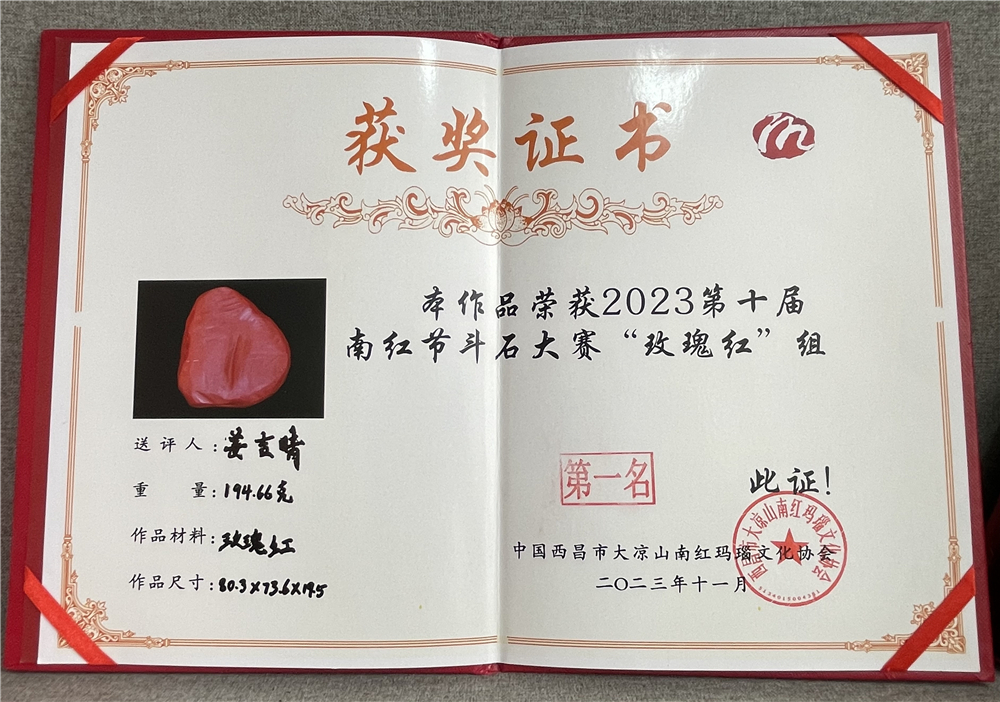 获奖证书
本作品荣获2023第十届
南红节斗石大赛“玫瑰红”组
送评人:姜吉晴
重 量:194.66克
作品材料:玫瑰红
作品尺寸:80.3×73.6×19.5
第一名
此证!
中国西昌市大凉山南红玛瑙文化协会
二〇二三年十一月
西昌市大凉山南红玛瑙文化协会